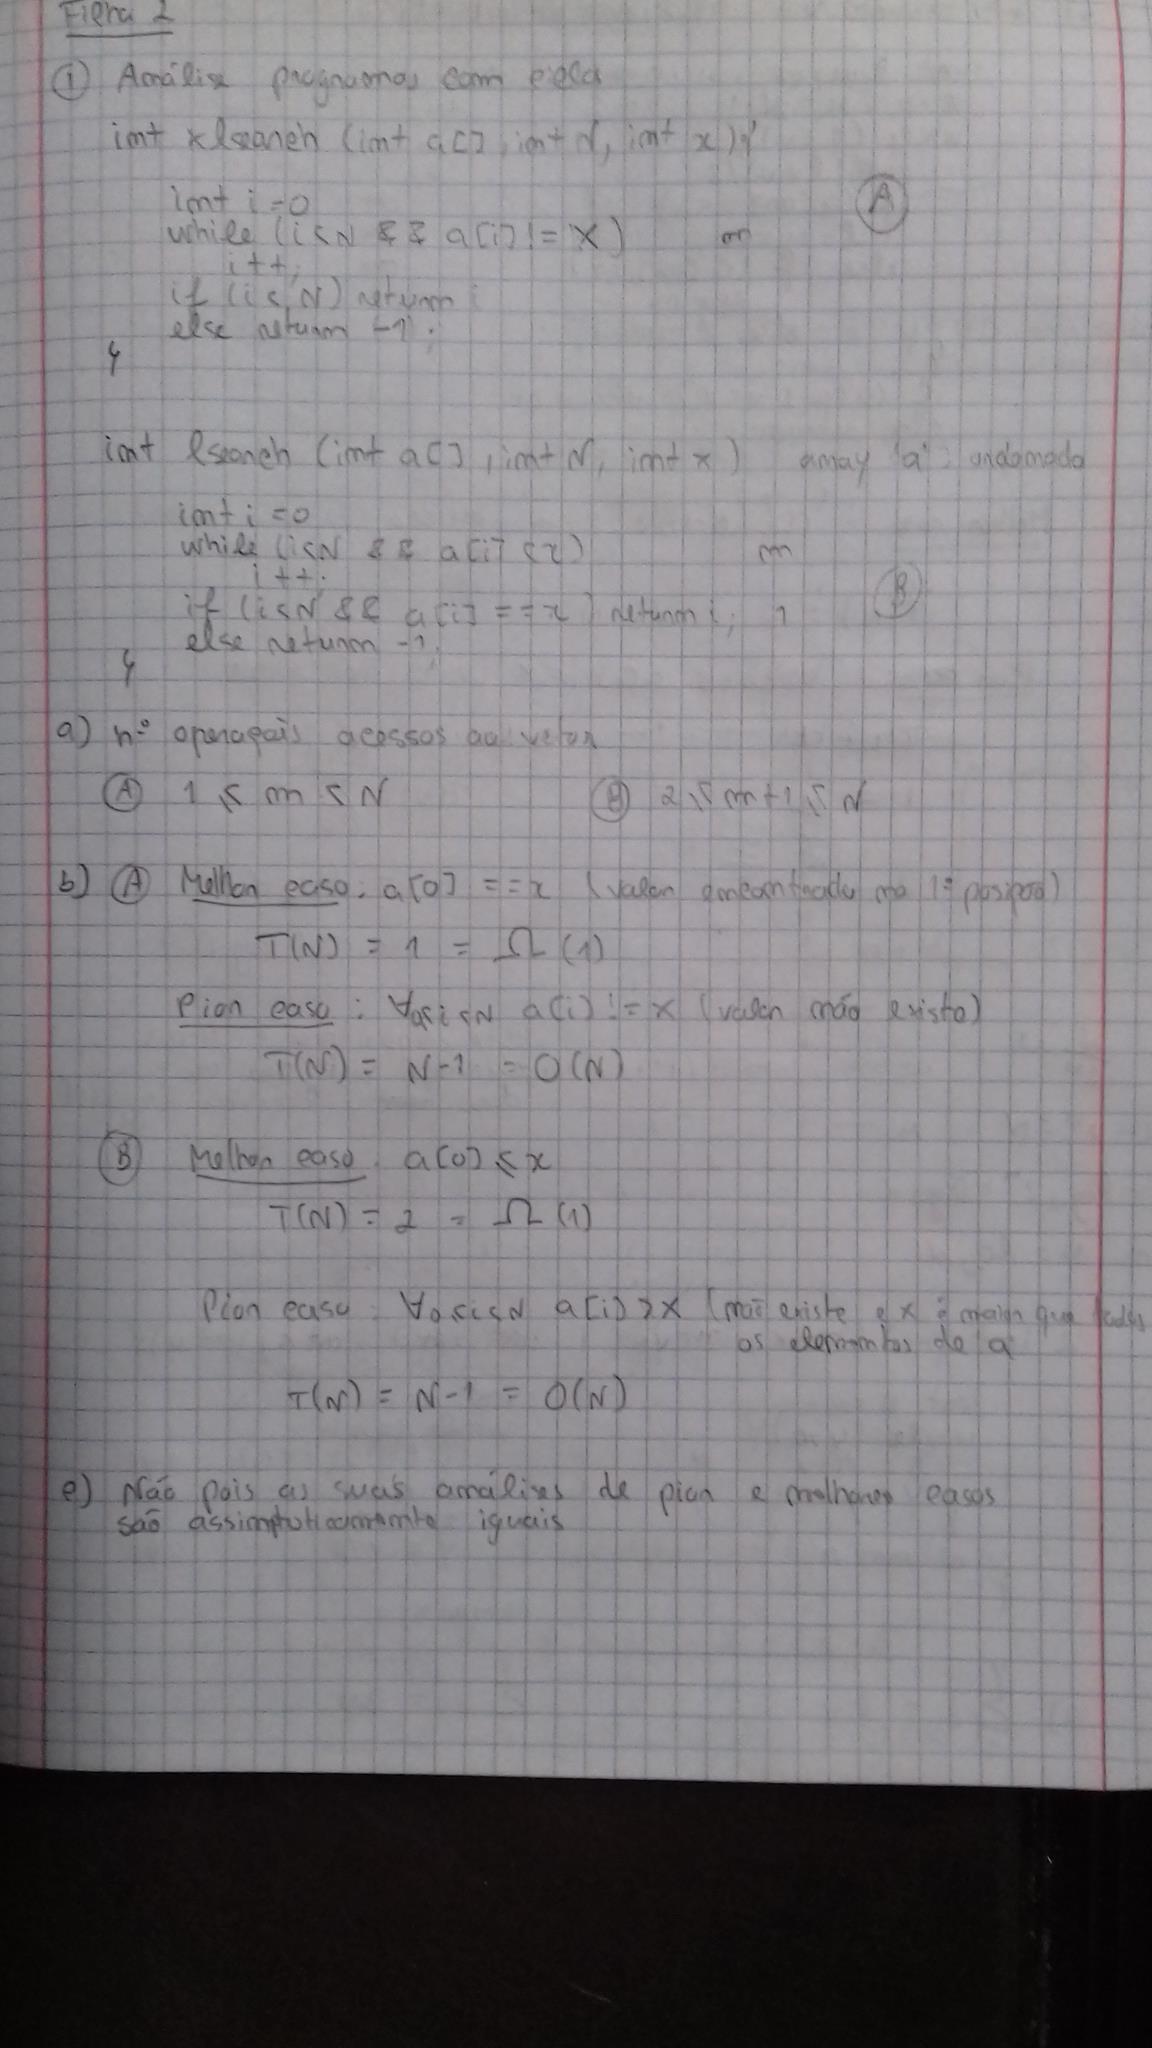 Ficha 2
① Análise programas com ciclos
int xlsearch (int a[], int N, int x) {
int i=0
while (i<N && a[i] != x) m Ⓐ
i++;
if (i<N) return i
else return -1;
}
int lsearch (int a[], int N, int x) array 'a' ordenado
int i=0
while (i<N && a[i] < x) m
i++;
if (i<N && a[i] == x) return i; 1 Ⓑ
else return -1;
}
a) nº operações acessos ao vetor
Ⓐ 1 ≤ m ≤ N Ⓑ 2 ≤ m+1 ≤ N
b) Ⓐ Melhor caso: a[0] == x (valor encontrado na 1ª posição)
T(N) = 1 = Ω(1)
Pior caso: ∀0≤i<N a[i] != x (valor não existe)
T(N) = N-1 = O(N)
Ⓑ Melhor caso: a[0] ≤ x
T(N) = 2 = Ω(1)
Pior caso: ∀0≤i<N a[i] > x (não existe e x é maior que todos
os elementos de a
T(N) = N-1 = O(N)
c) Não pois as suas análises de pior e melhores casos
são assimptoticamente iguais